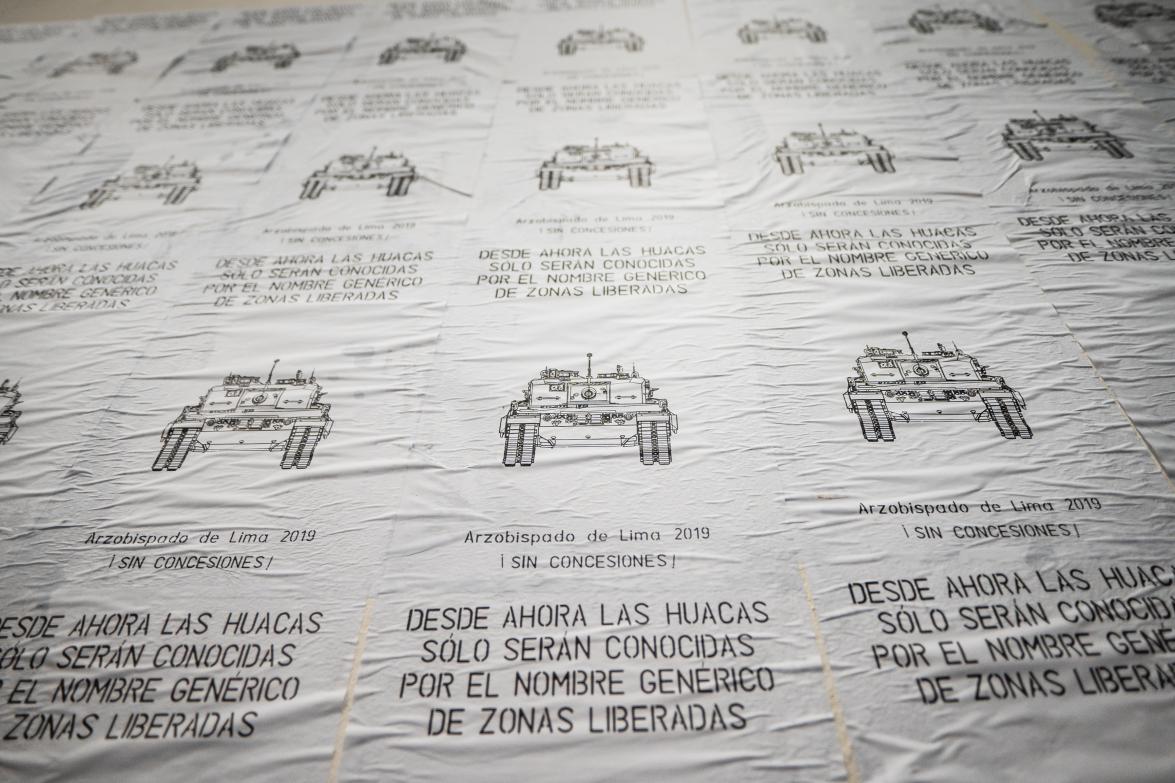 DESDE AHORA LAS HUACAS
SÓLO SERÁN CONOCIDAS
POR EL NOMBRE GENÉRICO
DE ZONAS LIBERADAS
DESDE AHORA LAS HUACAS
SÓLO SERÁN CONOCIDAS
POR EL NOMBRE GENÉRICO
DE ZONAS LIBERADAS
Arzobispado de Lima 2019
¡SIN CONCESIONES!
Arzobispado de Lima 2019
¡SIN CONCESIONES!
Arzobispado de Lima 2019
¡SIN CONCESIONES!
AHORA LAS HUACAS
SERÁN CONOCIDAS
NOMBRE GENÉRICO
LIBERADAS
DESDE AHORA LAS HUACAS
SÓLO SERÁN CONOCIDAS
POR EL NOMBRE GENÉRICO
DE ZONAS LIBERADAS
DESDE AHORA LAS HUACAS
SÓLO SERÁN CONOCIDAS
POR EL NOMBRE GENÉRICO
DE ZONAS LIBERADAS
DESDE AHORA LAS HUACAS
SÓLO SERÁN CONOCIDAS
POR EL NOMBRE GENÉRICO
DE ZONAS LIBERADAS
DESDE AHORA LAS
SÓLO SERÁN
POR EL NOMBRE
DE ZONAS
Arzobispado de Lima 2019
¡SIN CONCESIONES!
Arzobispado de Lima 2019
¡SIN CONCESIONES!
Arzobispado de Lima 2019
¡SIN CONCESIONES!
AHORA LAS HUACAS
SERÁN CONOCIDAS
EL NOMBRE GENÉRICO
ZONAS LIBERADAS
DESDE AHORA LAS HUACAS
SÓLO SERÁN CONOCIDAS
POR EL NOMBRE GENÉRICO
DE ZONAS LIBERADAS
DESDE AHORA LAS HUAC
SÓLO SERÁN CONOCID
POR EL NOMBRE GENÉ
DE ZONAS LIBERA